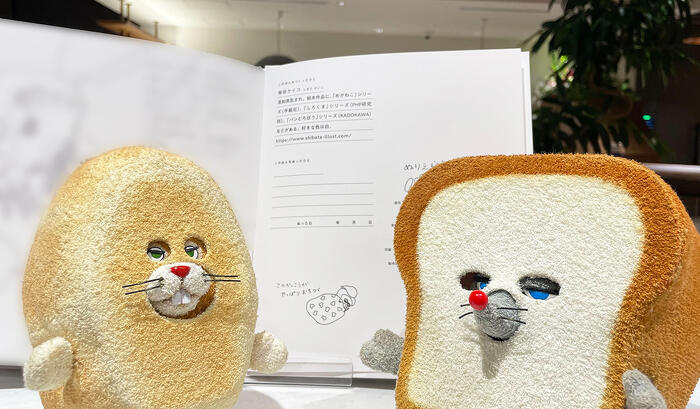 このほんをつくったひと
柴田ケイコ しばた けいこ
高知県生まれ。絵本作品に、「めがねこ」シリー
ズ(手紙社)、「しろくま」シリーズ(PHP研究
所)、「パンどろぼう」シリーズ(KADOKAWA)
などがある。好きな色は白。
https://www.shibata-illust.com/
このほんをぬったひと
ぬった日 年 月 日
このかっこうが
やっぱりおちつく
ぬりえ